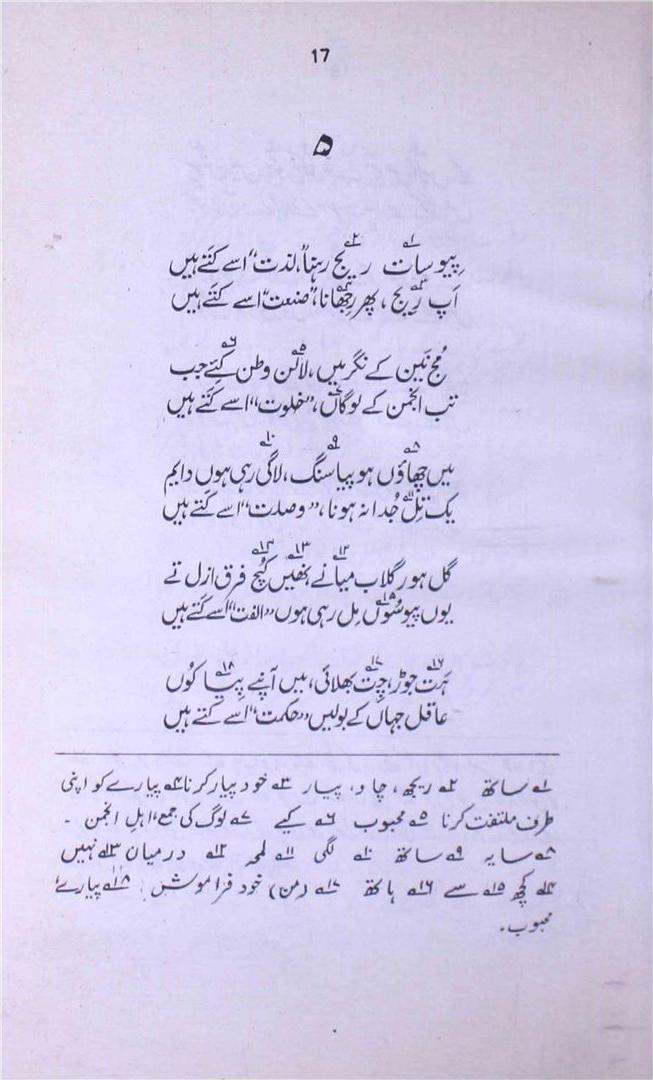 17
۵
پیو سات۱؎ ریج۲؎ رہنا، "لذت" اسے کتے ہیں
اَپ رِیج۳؎، پھر رِجھانا۴؎، "صنعت" اسے کتے ہیں
مُج نَین کے نگر میں، لالن۵؎ وطن کئے۶؎ جب
تب انجمن کے لوگاں۷؎، "خلوت" اسے کتے ہیں
میں چھاؤں۸؎ ہو پیا سنگ۹؎، لاگی۱۰؎ رہی ہوں دایم
یک تِل۱۱؎ جُدا نہ ہونا، "وصلت" اسے کتے ہیں
گل ہور گلاب میانے۱۲؎ نھیں۱۳؎ کُچ۱۴؎ فرق ازل تے
یوں پیو سُوں۱۵؎ مِل رہی ہوں "الفت" اسے کتے ہیں
ہَت۱۶؎ جوڑ، چِت۱۷؎ بھلائی، میں اَپنے پِیا۱۸؎ کوُں
عاقل جہاں کے بولیں "حکمت" اسے کتے ہیں
۱؎ ساتھ ۲؎ ریجھ، چاو، پیار ۳؎ خود پیار کرنا ۴؎ پیارے کو اپنی
طرف ملتفت کرنا ۵؎ محبوب ۶؎ کیے ۷؎ لوگ کی جمع، اہلِ انجمن ۔
۸؎ سایہ ۹؎ ساتھ ۱۰؎ لگی ۱۱؎ لمحہ ۱۲؎ درمیان ۱۳؎ نہیں
۱۴؎ کچھ ۱۵؎ سے ۱۶؎ ہاتھ ۱۷؎ (من) خود فراموش ۱۸؎ پیارے
محبوب۔